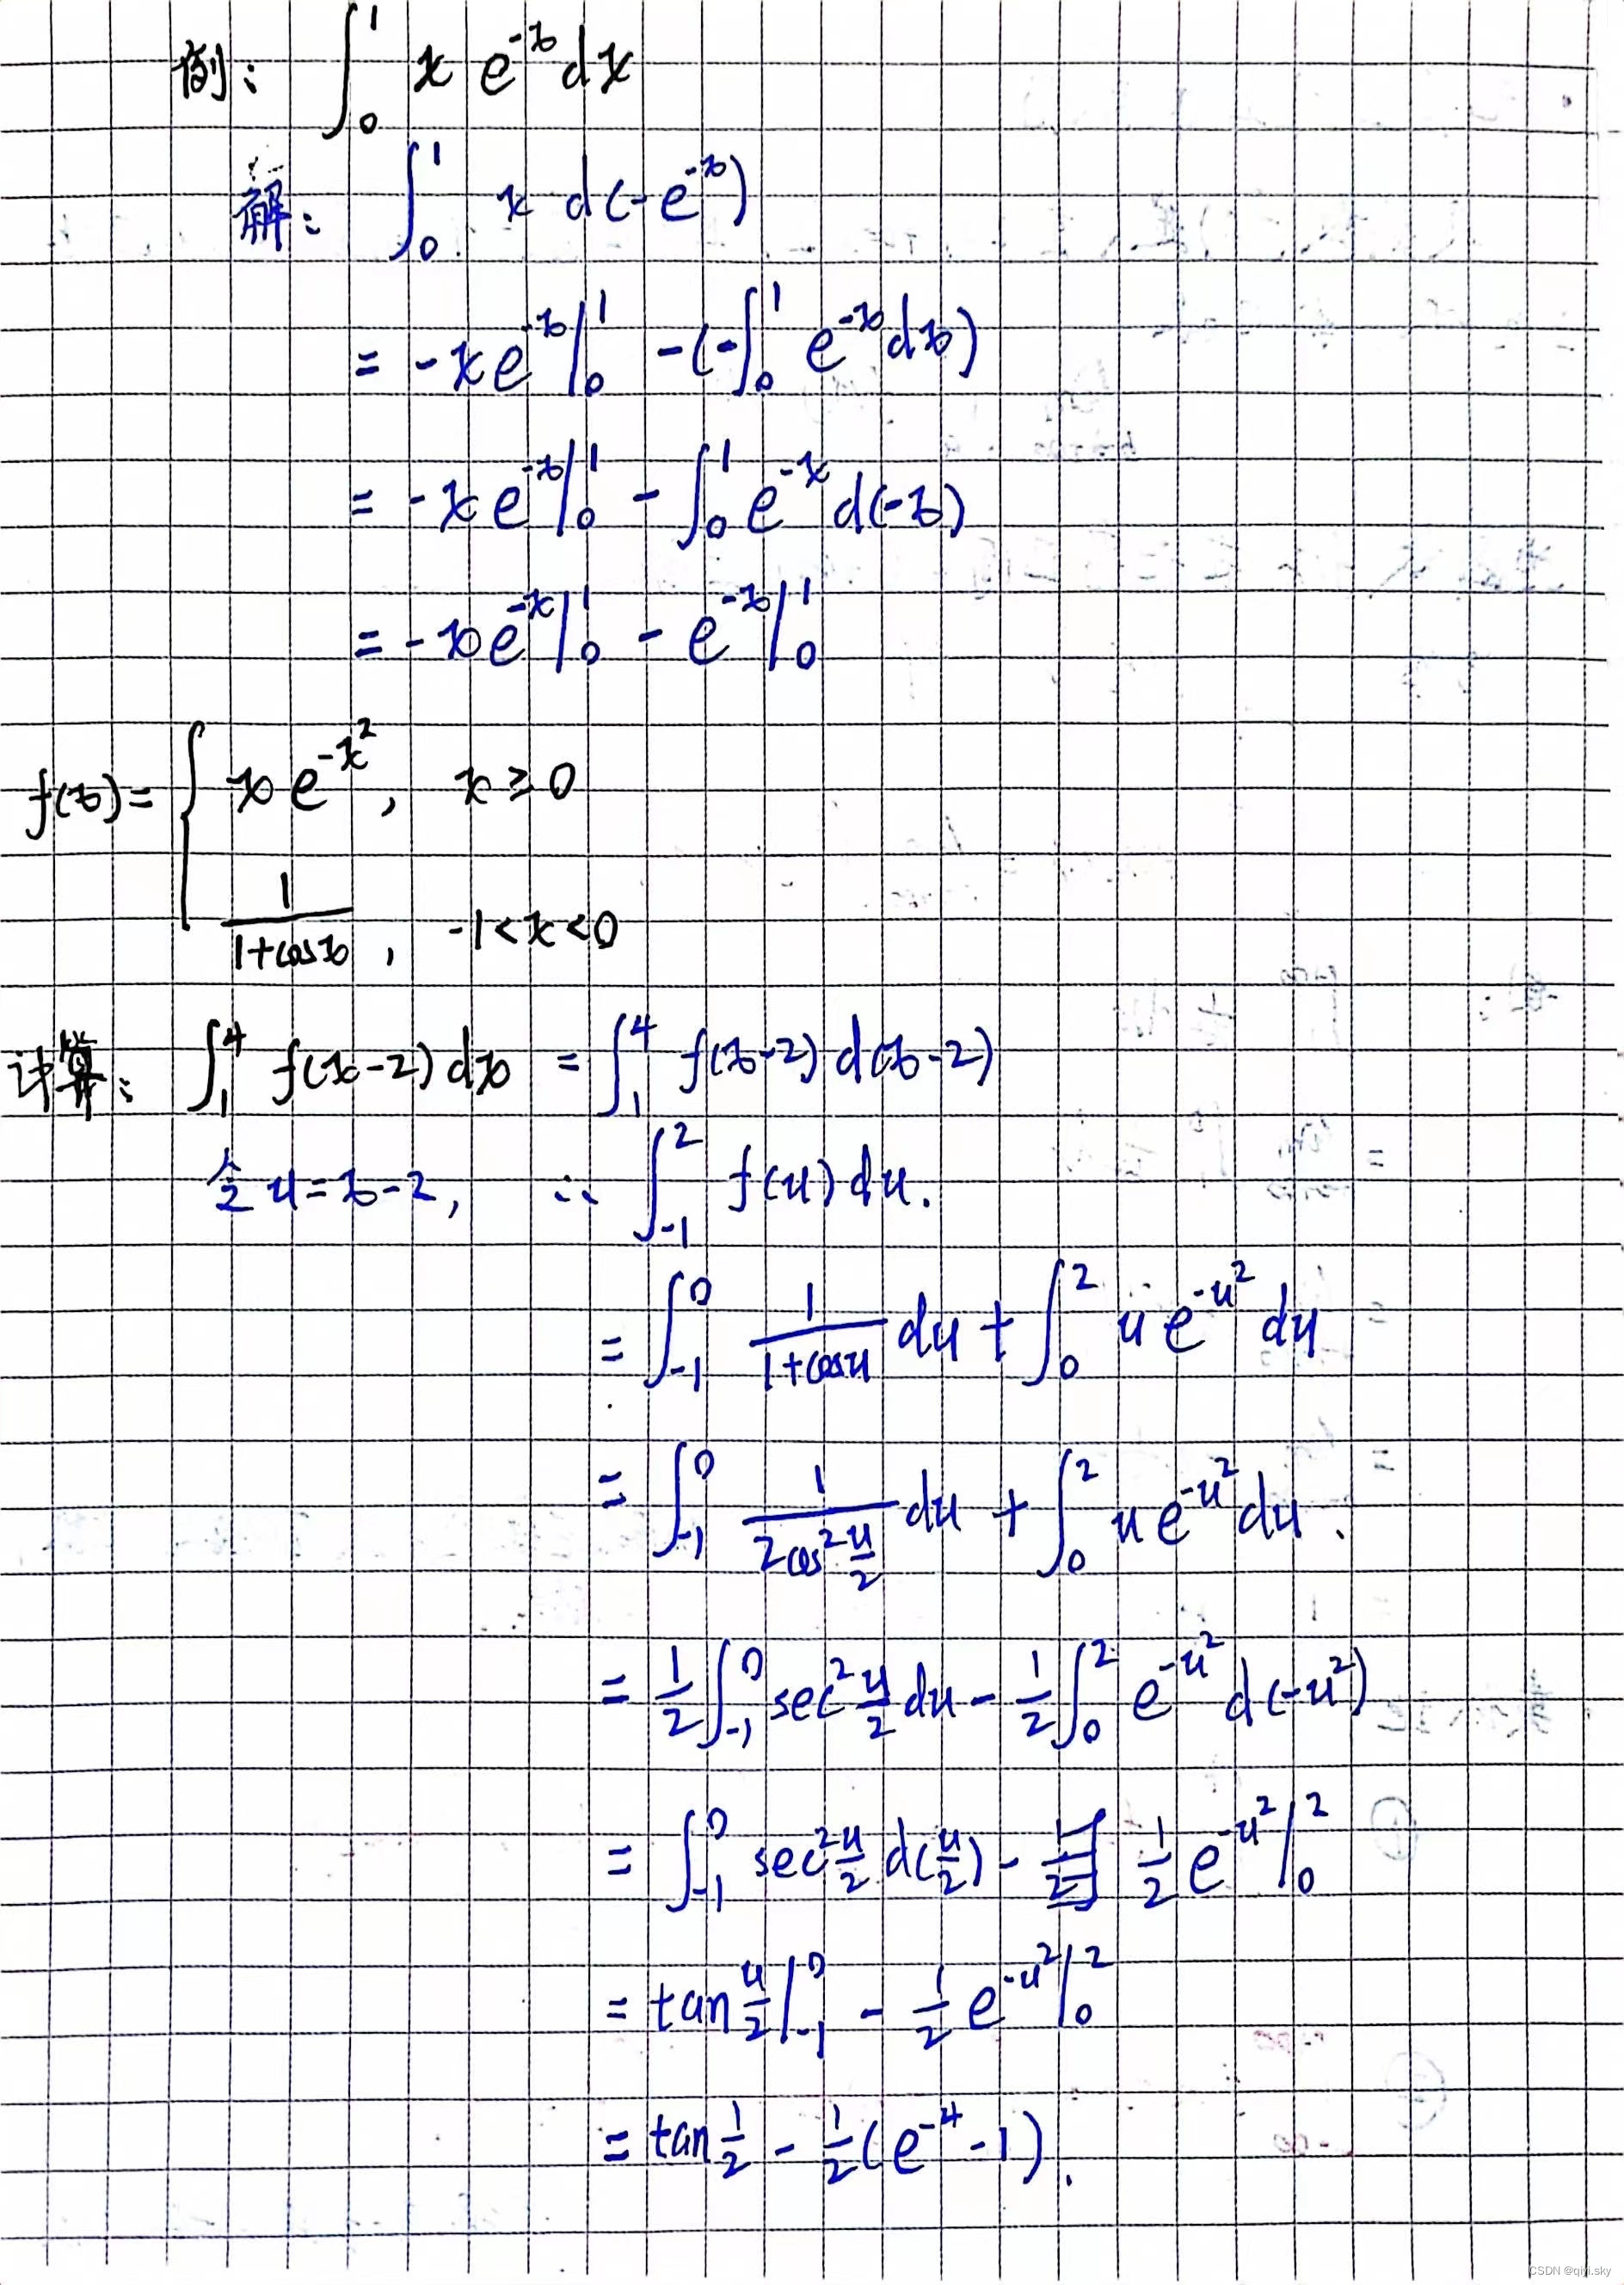 例: ∫₀¹ x e^{-x} dx
解: ∫₀¹ x d(-e^{-x})
= -x e^{-x} |₀¹ - (-∫₀¹ e^{-x} dx)
= -x e^{-x} |₀¹ - ∫₀¹ e^{-x} d(-x)
= -x e^{-x} |₀¹ - e^{-x} |₀¹
f(x) = { x e^{-x²}, x ≥ 0
1/(1+cosx), -1<x<0
计算: ∫₁⁴ f(x-2) dx = ∫₁⁴ f(x-2) d(x-2)
令 u=x-2, ∴ ∫₋₁² f(u) du.
= ∫₋₁⁰ 1/(1+cosu) du + ∫₀² u e^{-u²} du
= ∫₋₁⁰ 1/(2cos² u/2) du + ∫₀² u e^{-u²} du.
= 1/2 ∫₋₁⁰ sec² u/2 du - 1/2 ∫₀² e^{-u²} d(-u²)
= ∫₋₁⁰ sec² u/2 d(u/2) - 1/2 e^{-u²} |₀²
= tan u/2 |₋₁⁰ - 1/2 e^{-u²} |₀²
= tan 1/2 - 1/2 (e^{-4} - 1).
CSDN @qiyi.sky